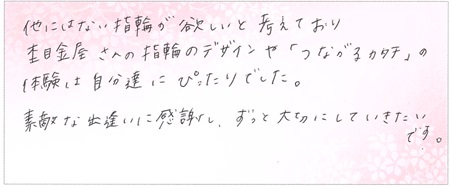 他にはない指輪が欲しいと考えており
杢目金屋さんの指輪のデザインや「つながるカタチ」の
体験は自分達にぴったりでした。
素敵な出逢いに感謝し、ずっと大切にしていきたい
です。